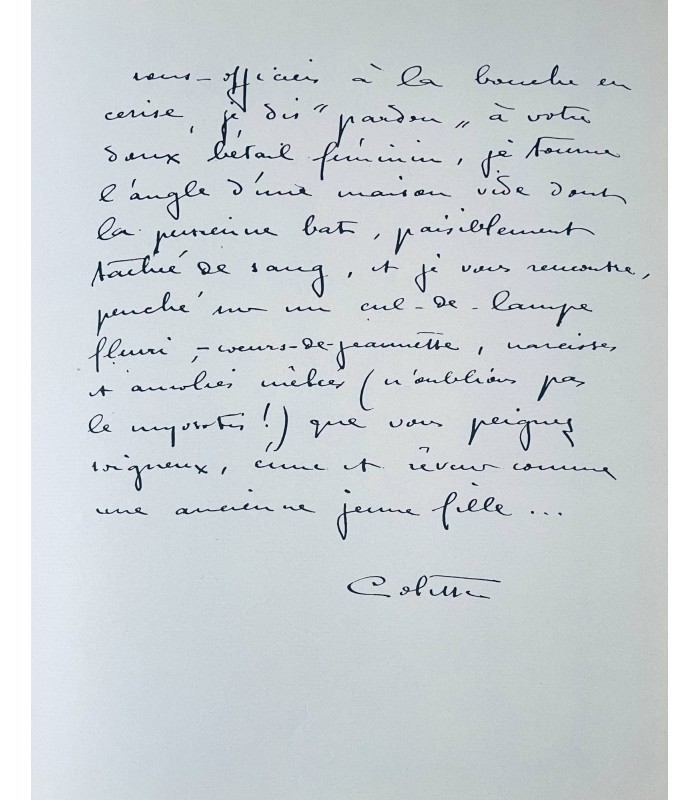 sous-officiers à la bouche en
cerise, je dis "pardon" à votre
doux bétail féminin, je tourne
l'angle d'une maison vide dont
la persienne bat, paisiblement
taché de sang, et je vous rencontre,
penché sur un cul-de-lampe
fleuri, - cœurs-de-jeannette, narcisses
et ancolies mêlés (n'oublions pas
le myosotis!) que vous peignez
soigneux, ému et rêveur comme
une ancienne jeune fille...
Colette